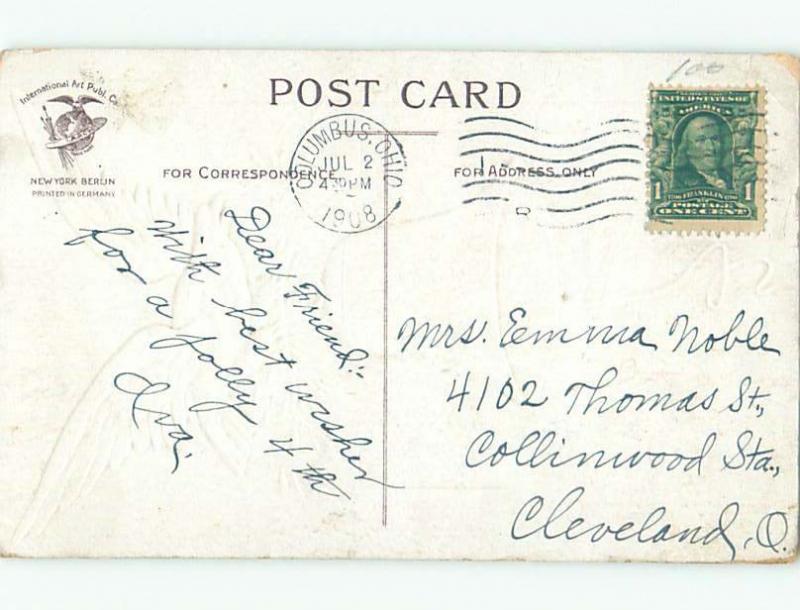 100
POST CARD
International Art Publ. Co.
NEW YORK BERLIN
PRINTED IN GERMANY
FOR CORRESPONDENCE
FOR ADDRESS ONLY
COLUMBUS, OHIO
JUL 2
1908
UNITED STATES OF
AMERICA
1 FRANKLIN 1
POSTAGE
ONE CENT
Dear Friend:-
With best wishes
for a jolly 4th
Iva.
Mrs. Emma Noble
4102 Thomas St.,
Collinwood Sta.,
Cleveland, O.